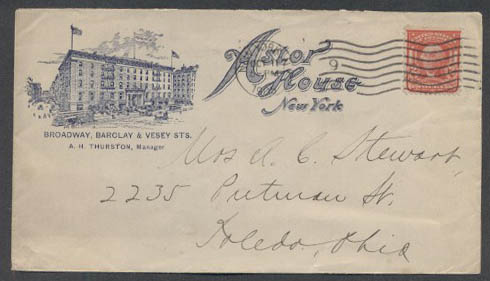 Astor
House
New York
9
BROADWAY, BARCLAY & VESEY STS.
A. H. THURSTON, Manager
Mrs A. C. Stewart
2235 Putman St.
Toledo, Ohio